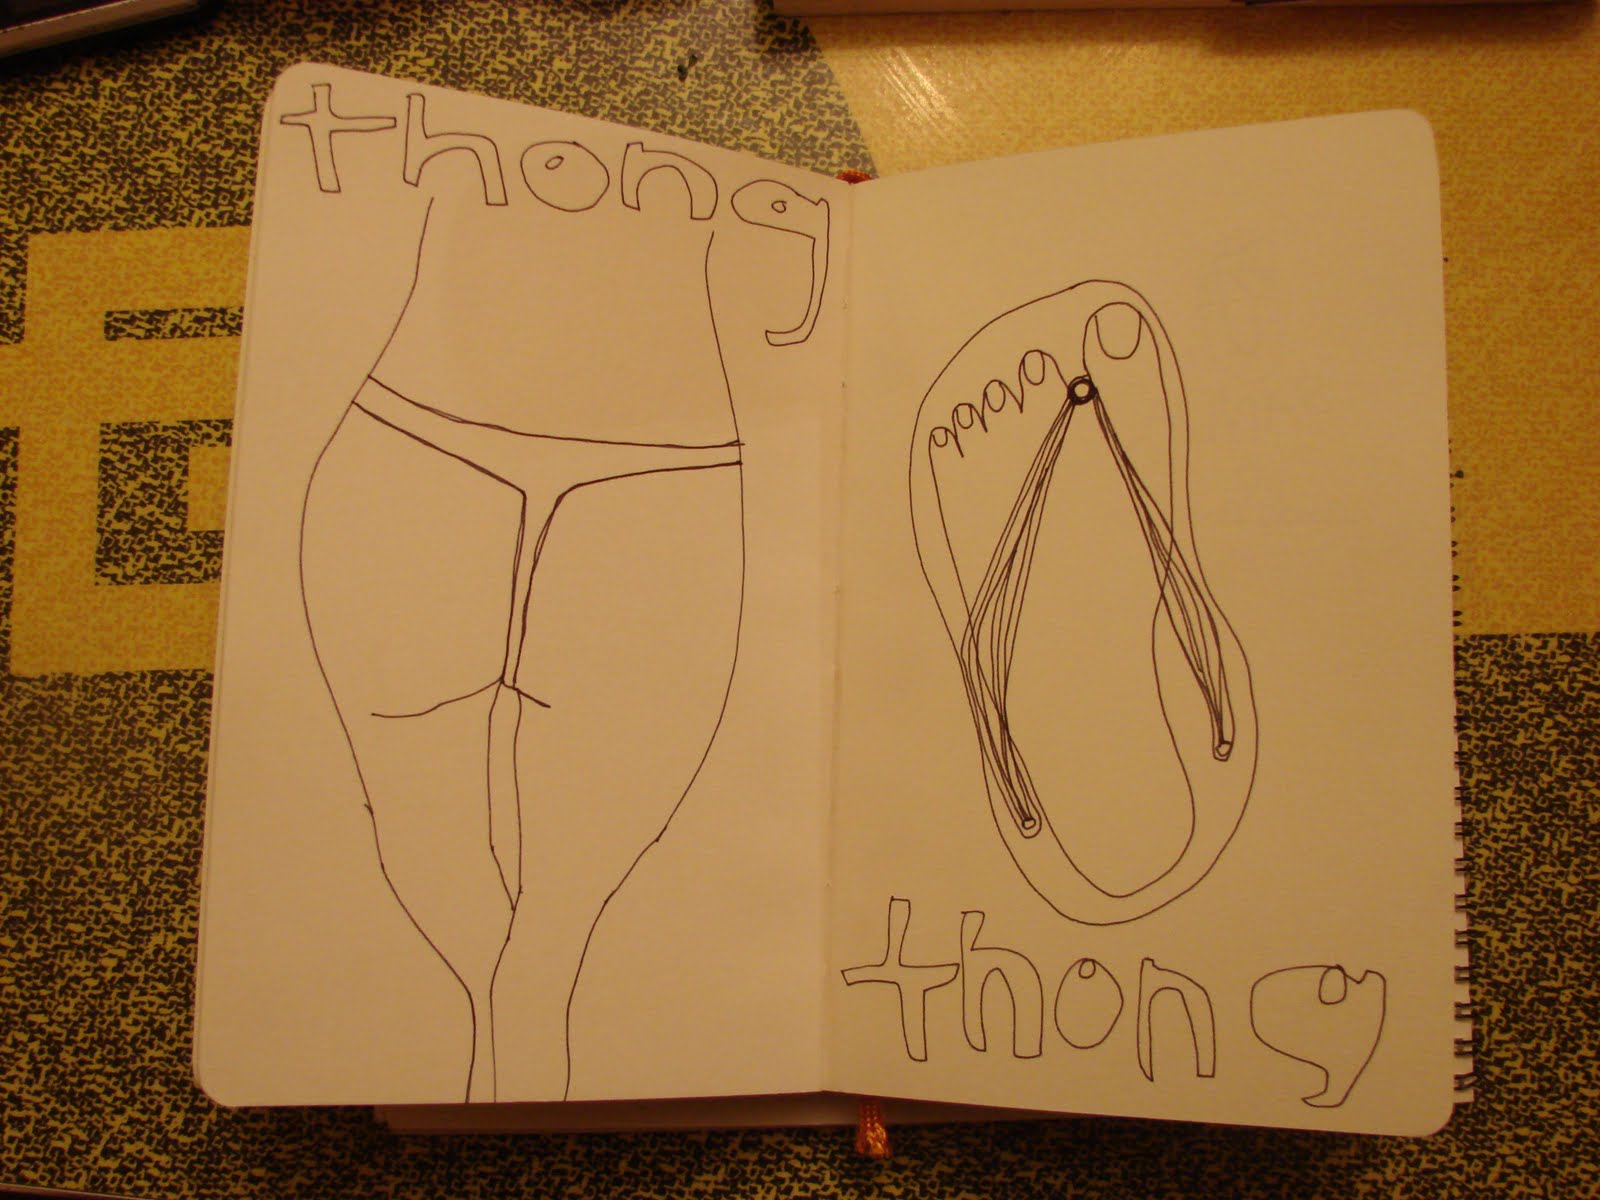 thong
thong